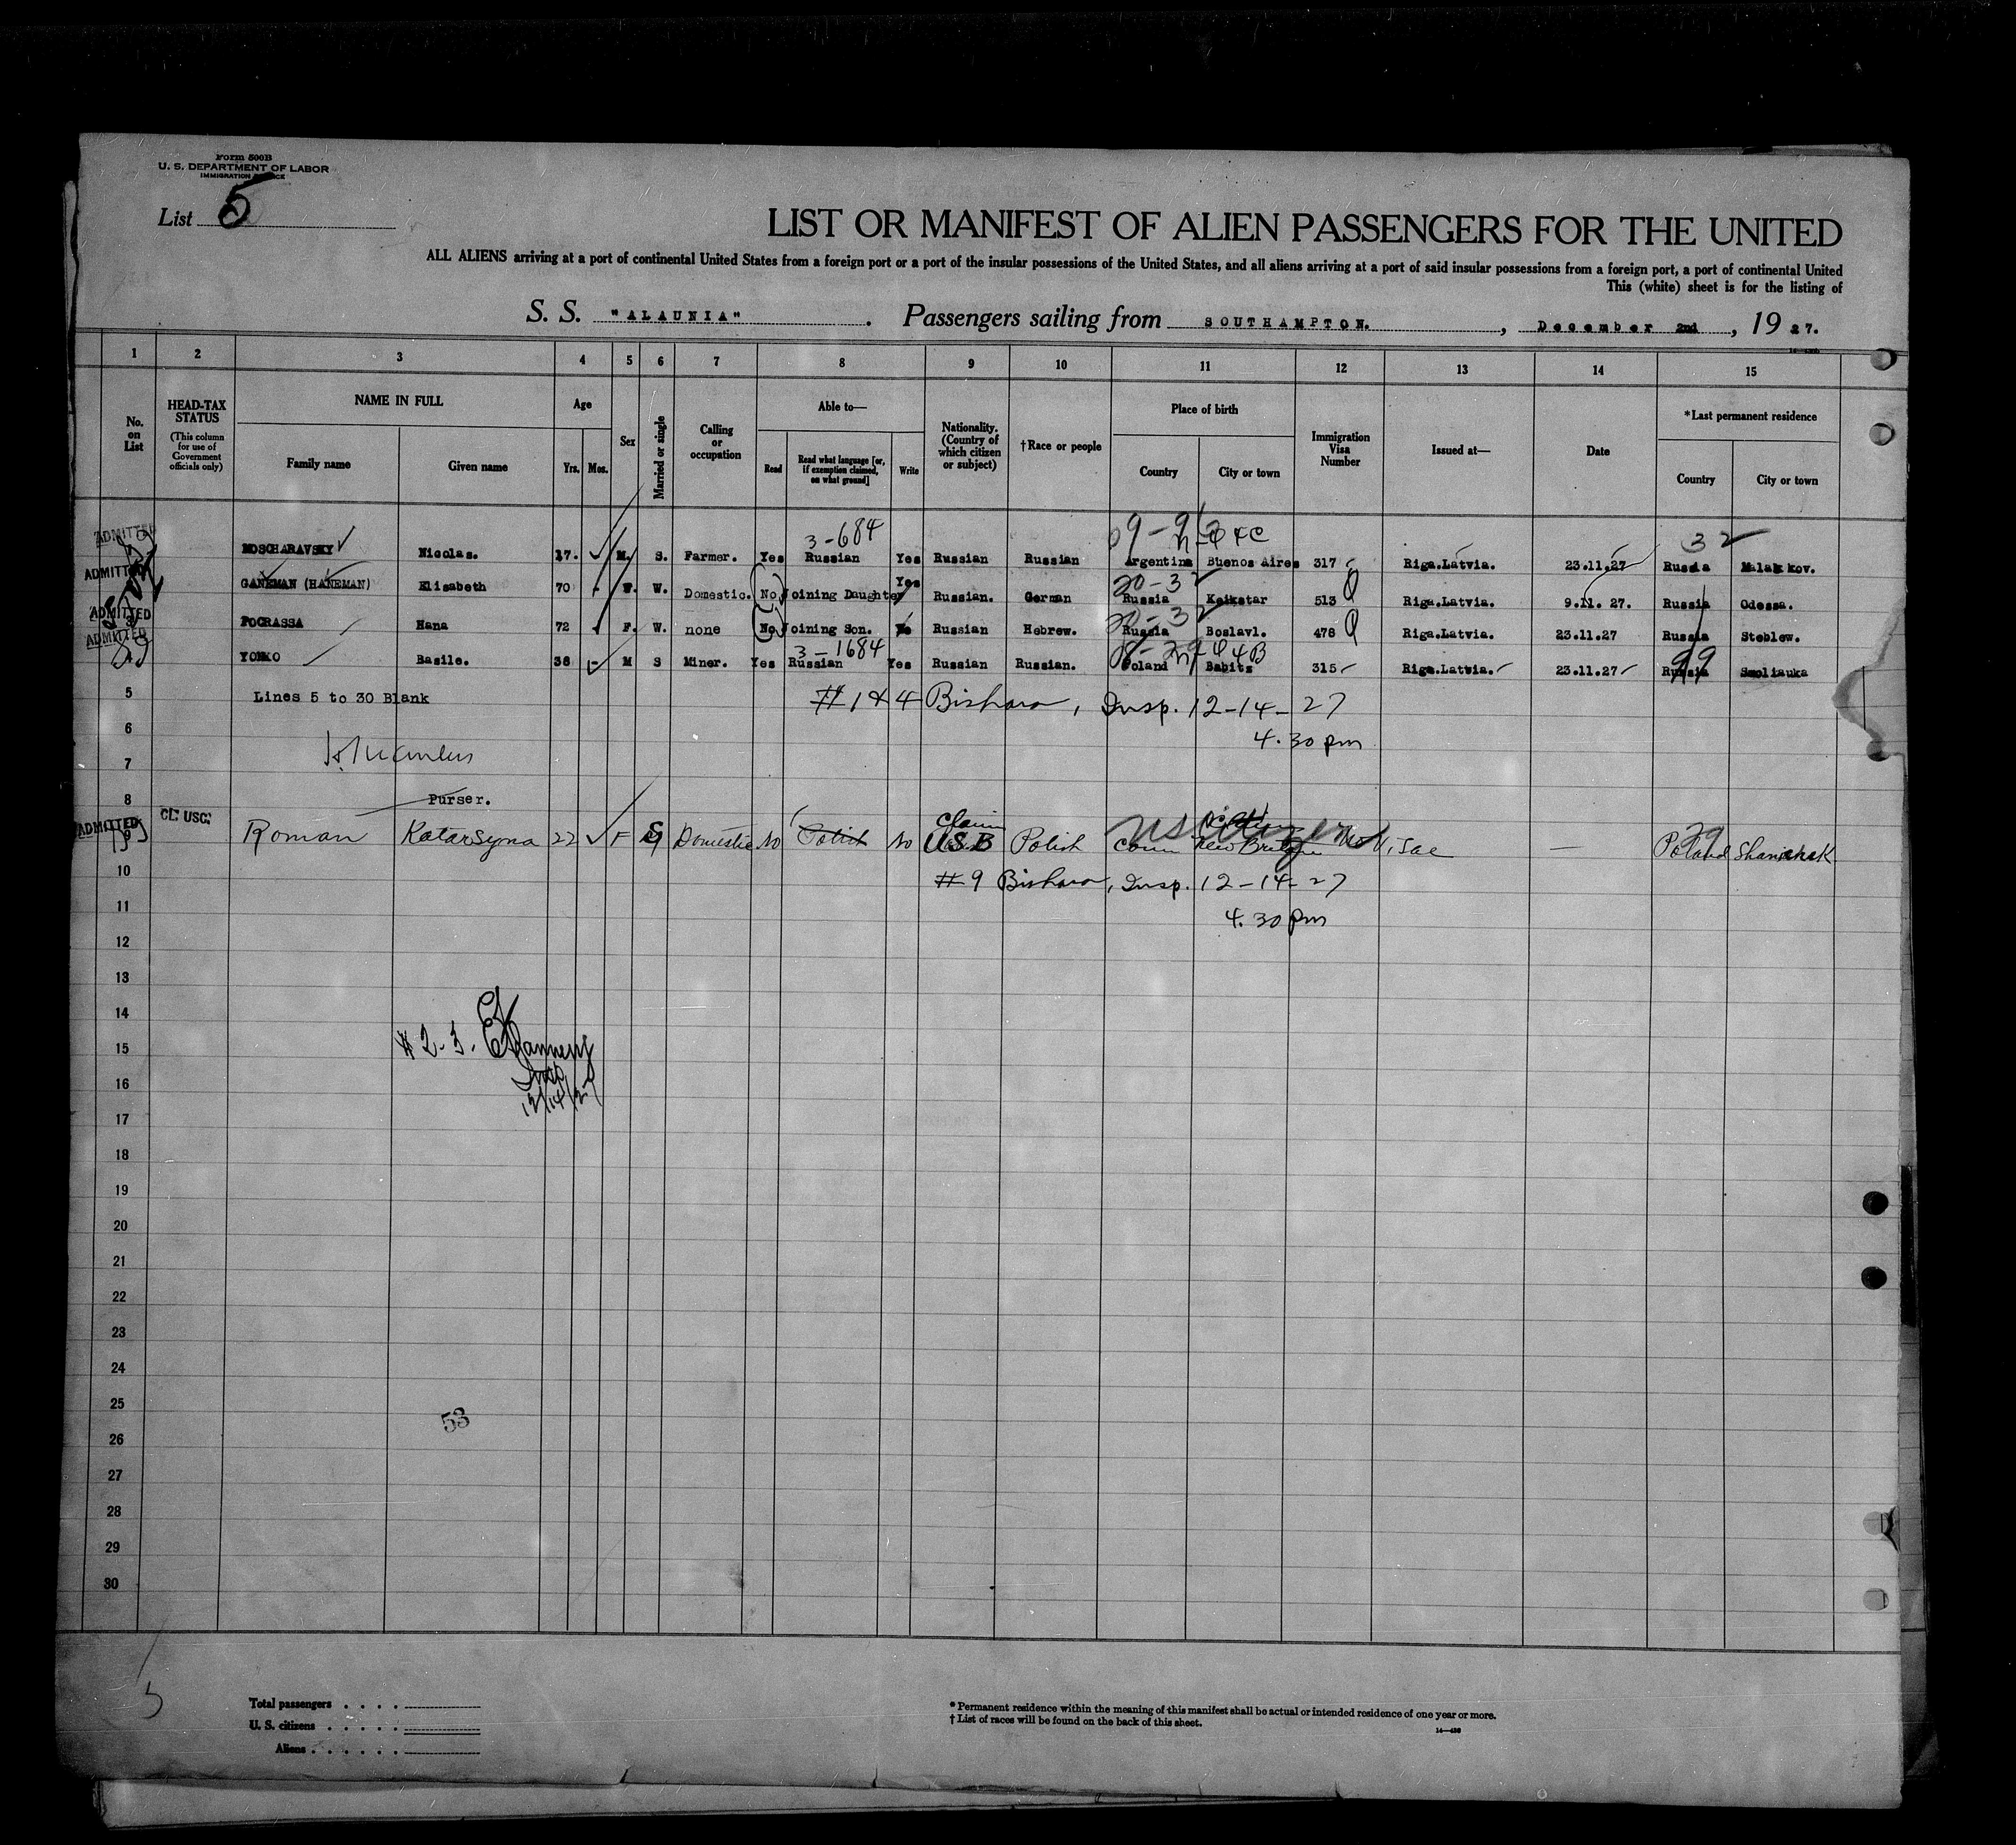 Form 500B
U. S. DEPARTMENT OF LABOR
IMMIGRATION SERVICE
List 5
LIST OR MANIFEST OF ALIEN PASSENGERS FOR THE UNITED
ALL ALIENS arriving at a port of continental United States from a foreign port or a port of the insular possessions of the United States, and all aliens arriving at a port of said insular possessions from a foreign port, a port of continental United
This (white) sheet is for the listing of
S. S. "ALAUNIA". Passengers sailing from SOUTHAMPTON., December 2nd, 1927.
1 2 3 4 5 6 7 8 9 10 11 12 13 14 15
No. on List
HEAD-TAX STATUS (This column for use of Government officials only)
NAME IN FULL
Family name Given name
Age
Yrs. Mos.
Sex
Married or single
Calling or occupation
Able to—
Read Read what language [or, if exemption claimed, on what ground] Write
Nationality. (Country of which citizen or subject)
†Race or people
Place of birth
Country City or town
Immigration Visa Number
Issued at—
Date
*Last permanent residence
Country City or town
3-684
32
ADMITTED MOSCHARAVSKY Nicolas. 17. M. S. Farmer. Yes Russian Yes Russian Russian Argentina Buenos Aires 317 Riga.Latvia. 23.11.27 Russia
20-32
ADMITTED GANEMAN (HANEMAN) Elisabeth 70 F. W. Domestic. No. Joining Daughter Yes Russian. German Russia Keikstar 513 Riga.Latvia. 9.11. 27. Russia Odessa.
ADMITTED POGRASSA Hana 72 F. W. none No. Joining Son. No Russian Hebrew. Russia Boslavl. 478 Riga.Latvia. 23.11.27 Russia Steblew.
3-1684
ADMITTED 4 YONKO Basile. 38 M S Miner. Yes Russian Yes Russian Russian. Poland Babitz 315 Riga.Latvia. 23.11.27 Russia Smoliauka
5 Lines 5 to 30 Blank #1&4 Bishara, Insp. 12-14-27
6 4.30 pm
7
8 Purser.
ADMITTED 9 CL: USC: Roman Katarsyna 22 F S Domestic No Polish No Claim USB Polish Conn New Britain No Visae — Poland
10 #9 Bishara, Insp. 12-14-27
11 4.30 pm
12
13
14
15 #2-3.
16
12/14/27
17
18
19
20
21
22
23
24
25
53
26
27
28
29
30
5
Total passengers . . . .
U. S. citizens . . . . .
Aliens . . . . . .
* Permanent residence within the meaning of this manifest shall be actual or intended residence of one year or more.
† List of races will be found on the back of this sheet.